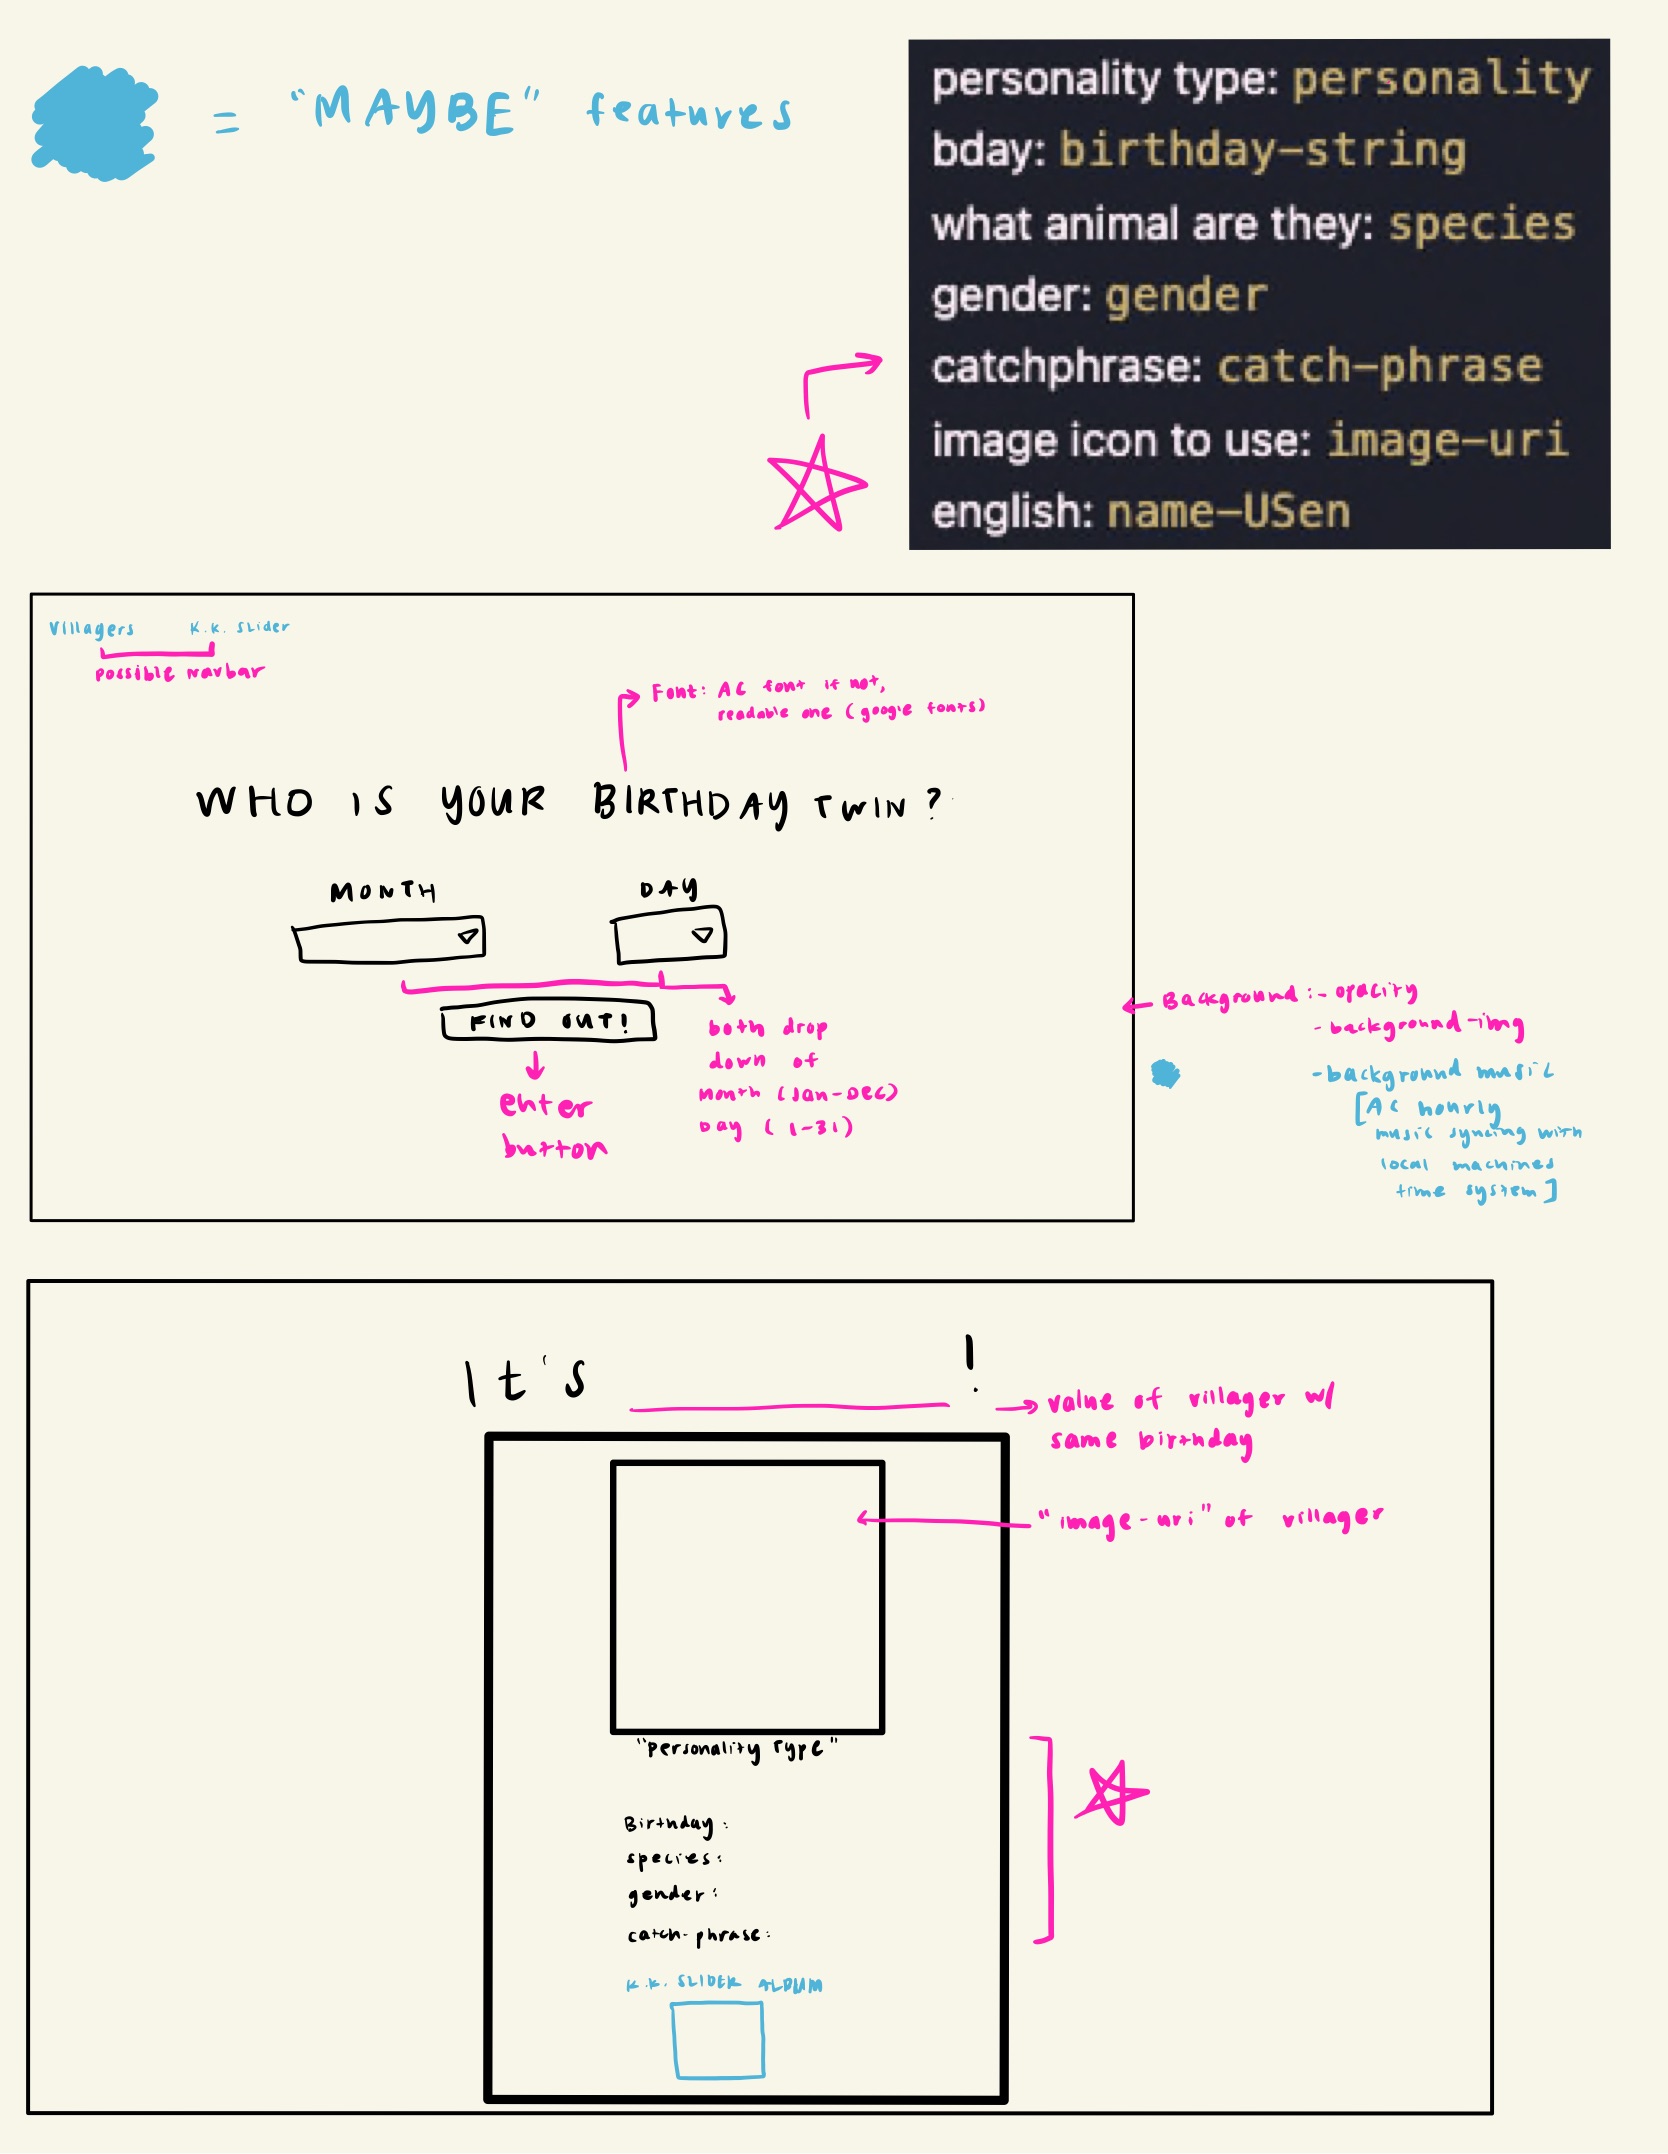 = "MAYBE" features
personality type: personality
bday: birthday-string
what animal are they: species
gender: gender
catchphrase: catch-phrase
image icon to use: image-uri
english: name-USen
Villagers K.K. Slider
possible navbar
Font: AC font if not,
readable one (google fonts)
WHO IS YOUR BIRTHDAY TWIN?
MONTH DAY
FIND OUT!
both drop
down of
Month (Jan-Dec)
Day (1-31)
enter
button
Background: - opacity
- background-img
- background music
[AC hourly
music syncing with
local machines
time system]
It's !
value of villager w/
same birthday
"image-uri" of villager
"Personality Type"
Birthday:
species:
gender:
catch-phrase:
K.K. SLIDER ALBUM